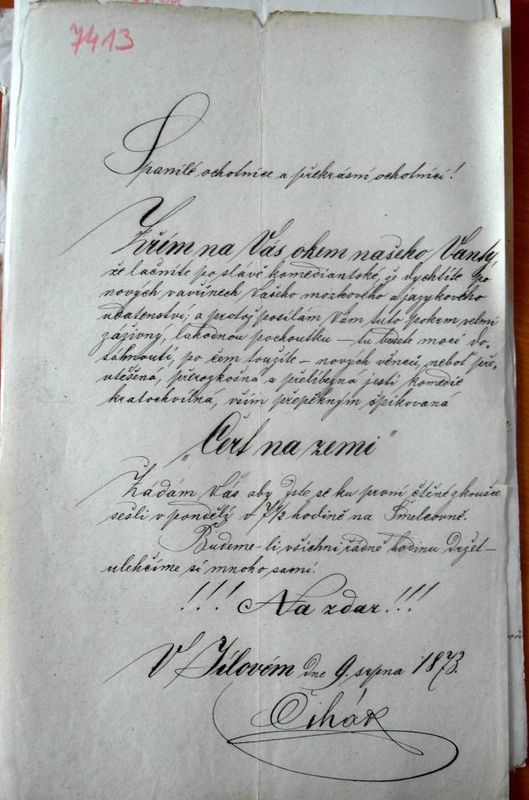 7413
Spanilé ochotnice a překrásní ochotníci!
Zřím na Vás okem našeho Vanty,
že lačníte po slávě komediantské, že dychtíte po
nových vavřínech Vašeho mozkového a jazykového
umění; a protož posílám Vám tuto pokrm velmi
záživný, lahodnou pochoutku – tu budete moci do-
sáhnouti, po čem toužíte – nových věnců, neboť pře-
utěšená, přerozkošná a přelíbezná jesti komedie
kratochvilná, vším přepěkným špikovaná
„Čert na zemi"
Žádám Vás aby jste se ku první čtěné zkoušce
sešli v pondělý v 7 1/2 hodině na Šmelcovně.
Budeme-li všichni řádně hodinu držet –
ulehčíme si mnoho sami.
!!! Na zdar!!!
V Jílovém dne 9. srpna 1873.
Čihák